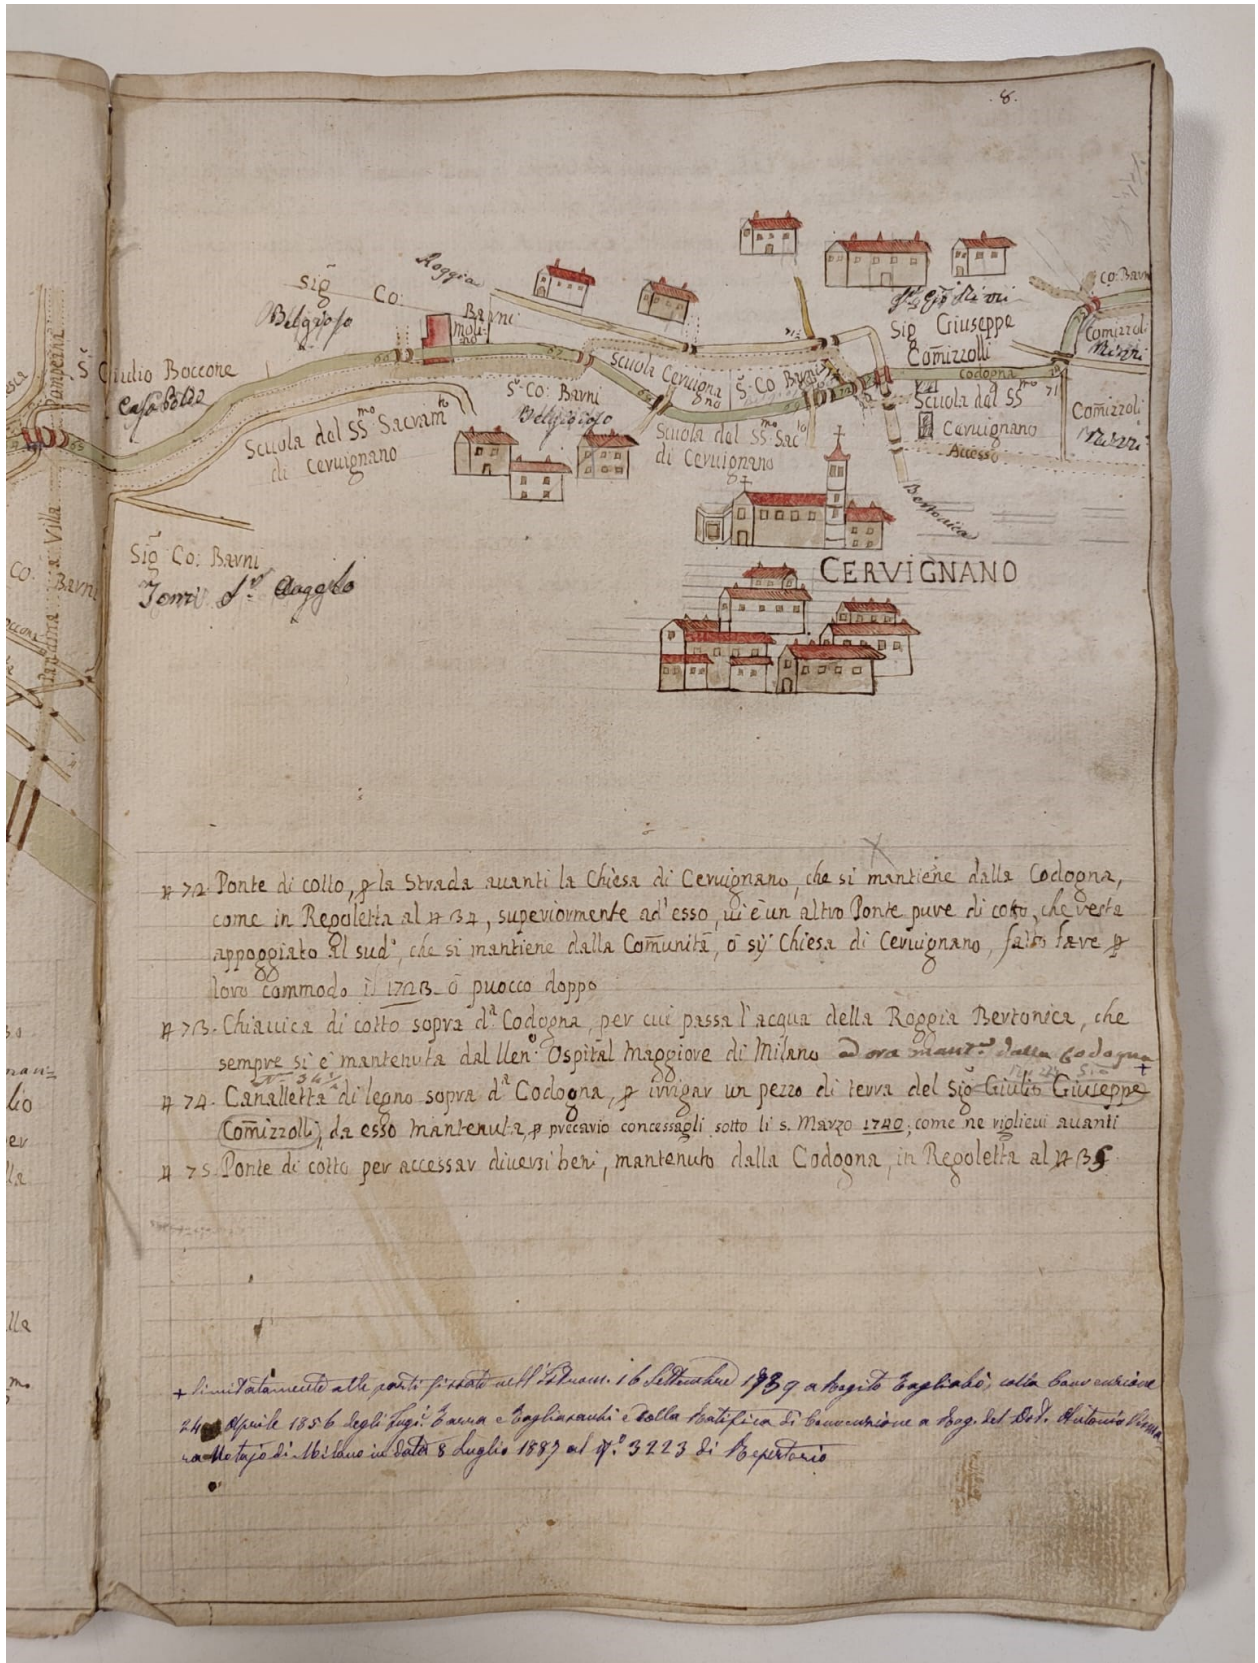 8.
Roggia
Sig Co: Barni
Belgioioso
molino
Co: Barni
Sig Giuseppe
Comizzolli
Comizzoli
Codogna
S. Giulio Boccone
Scuola Cervignano
S. Co: Barni
S. Co: Barni
Belgioioso
Scuola del SS.mo
Cervignano
Comizzoli
71
Accesso
Scuola del SS.mo Sacram.to
di Cervignano
Scuola del SS.mo Sac.to
di Cervignano
Bertonica
Sig Co: Barni
CERVIGNANO
Co: Barni
Villa
# 72. Ponte di cotto, p la Strada avanti la Chiesa di Cervignano, che si mantiene dalla Codogna,
come in Regoletta al # 34, superiormente ad'esso, vi è un altro Ponte pure di cotto, che resta
appoggiato al sud.o, che si mantiene dalla Comunità, ò sij Chiesa di Cervignano, fatto fare p
loro commodo il 1723. ò puocco doppo
# 73. Chiavica di cotto sopra d.a Codogna, per cui passa l'acqua della Roggia Bertonica, che
sempre si è mantenuta dal Ven.o Ospital Maggiore di Milano ed ora mant.a dalla Codogna
+
# 74. Canalletta di legno sopra d.a Codogna, p irrigar un pezzo di terra del Sig Giulio Giuseppe
Comizzolli, da esso mantenuta, p precario concessagli sotto li 5. Marzo 1740; come ne riglievi avanti
# 75. Ponte di cotto per accessar diversi beni, mantenuto dalla Codogna, in Regoletta al # 35
+ limitatamente alle parti fissate nell'Istrom. 16 Settembre 1739 a Rogito Tagliabò, colla Convenzione
24 Aprile 1856 degli Ing.i Tarra e Tagliasacchi e colla Ratifica di Convenzione a Rog. del Dott. Antonio
Notajo di Milano in data 8 Luglio 1887 al N.o 3223 di Repertorio